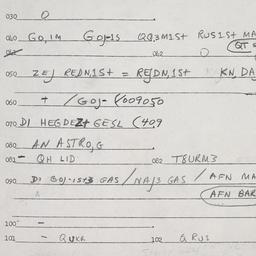 030 Q
040 GO,1M GOJ-1S QQ3M1St RUS1St MA
062 QT
050 ZEJ REDN,1St = REJDN,1St KN, DA
060 + / GOJ- 4009050
070 DI HEGDEZt GESL (409
080 AN ASTRO,G
081 - QH LID 082 T8URM3
090 DI GOJ-1St3 GAS / NAJ3 GAS / AFN MA
AFN BAR
100 -
101 - QUKR 102 Q RUS